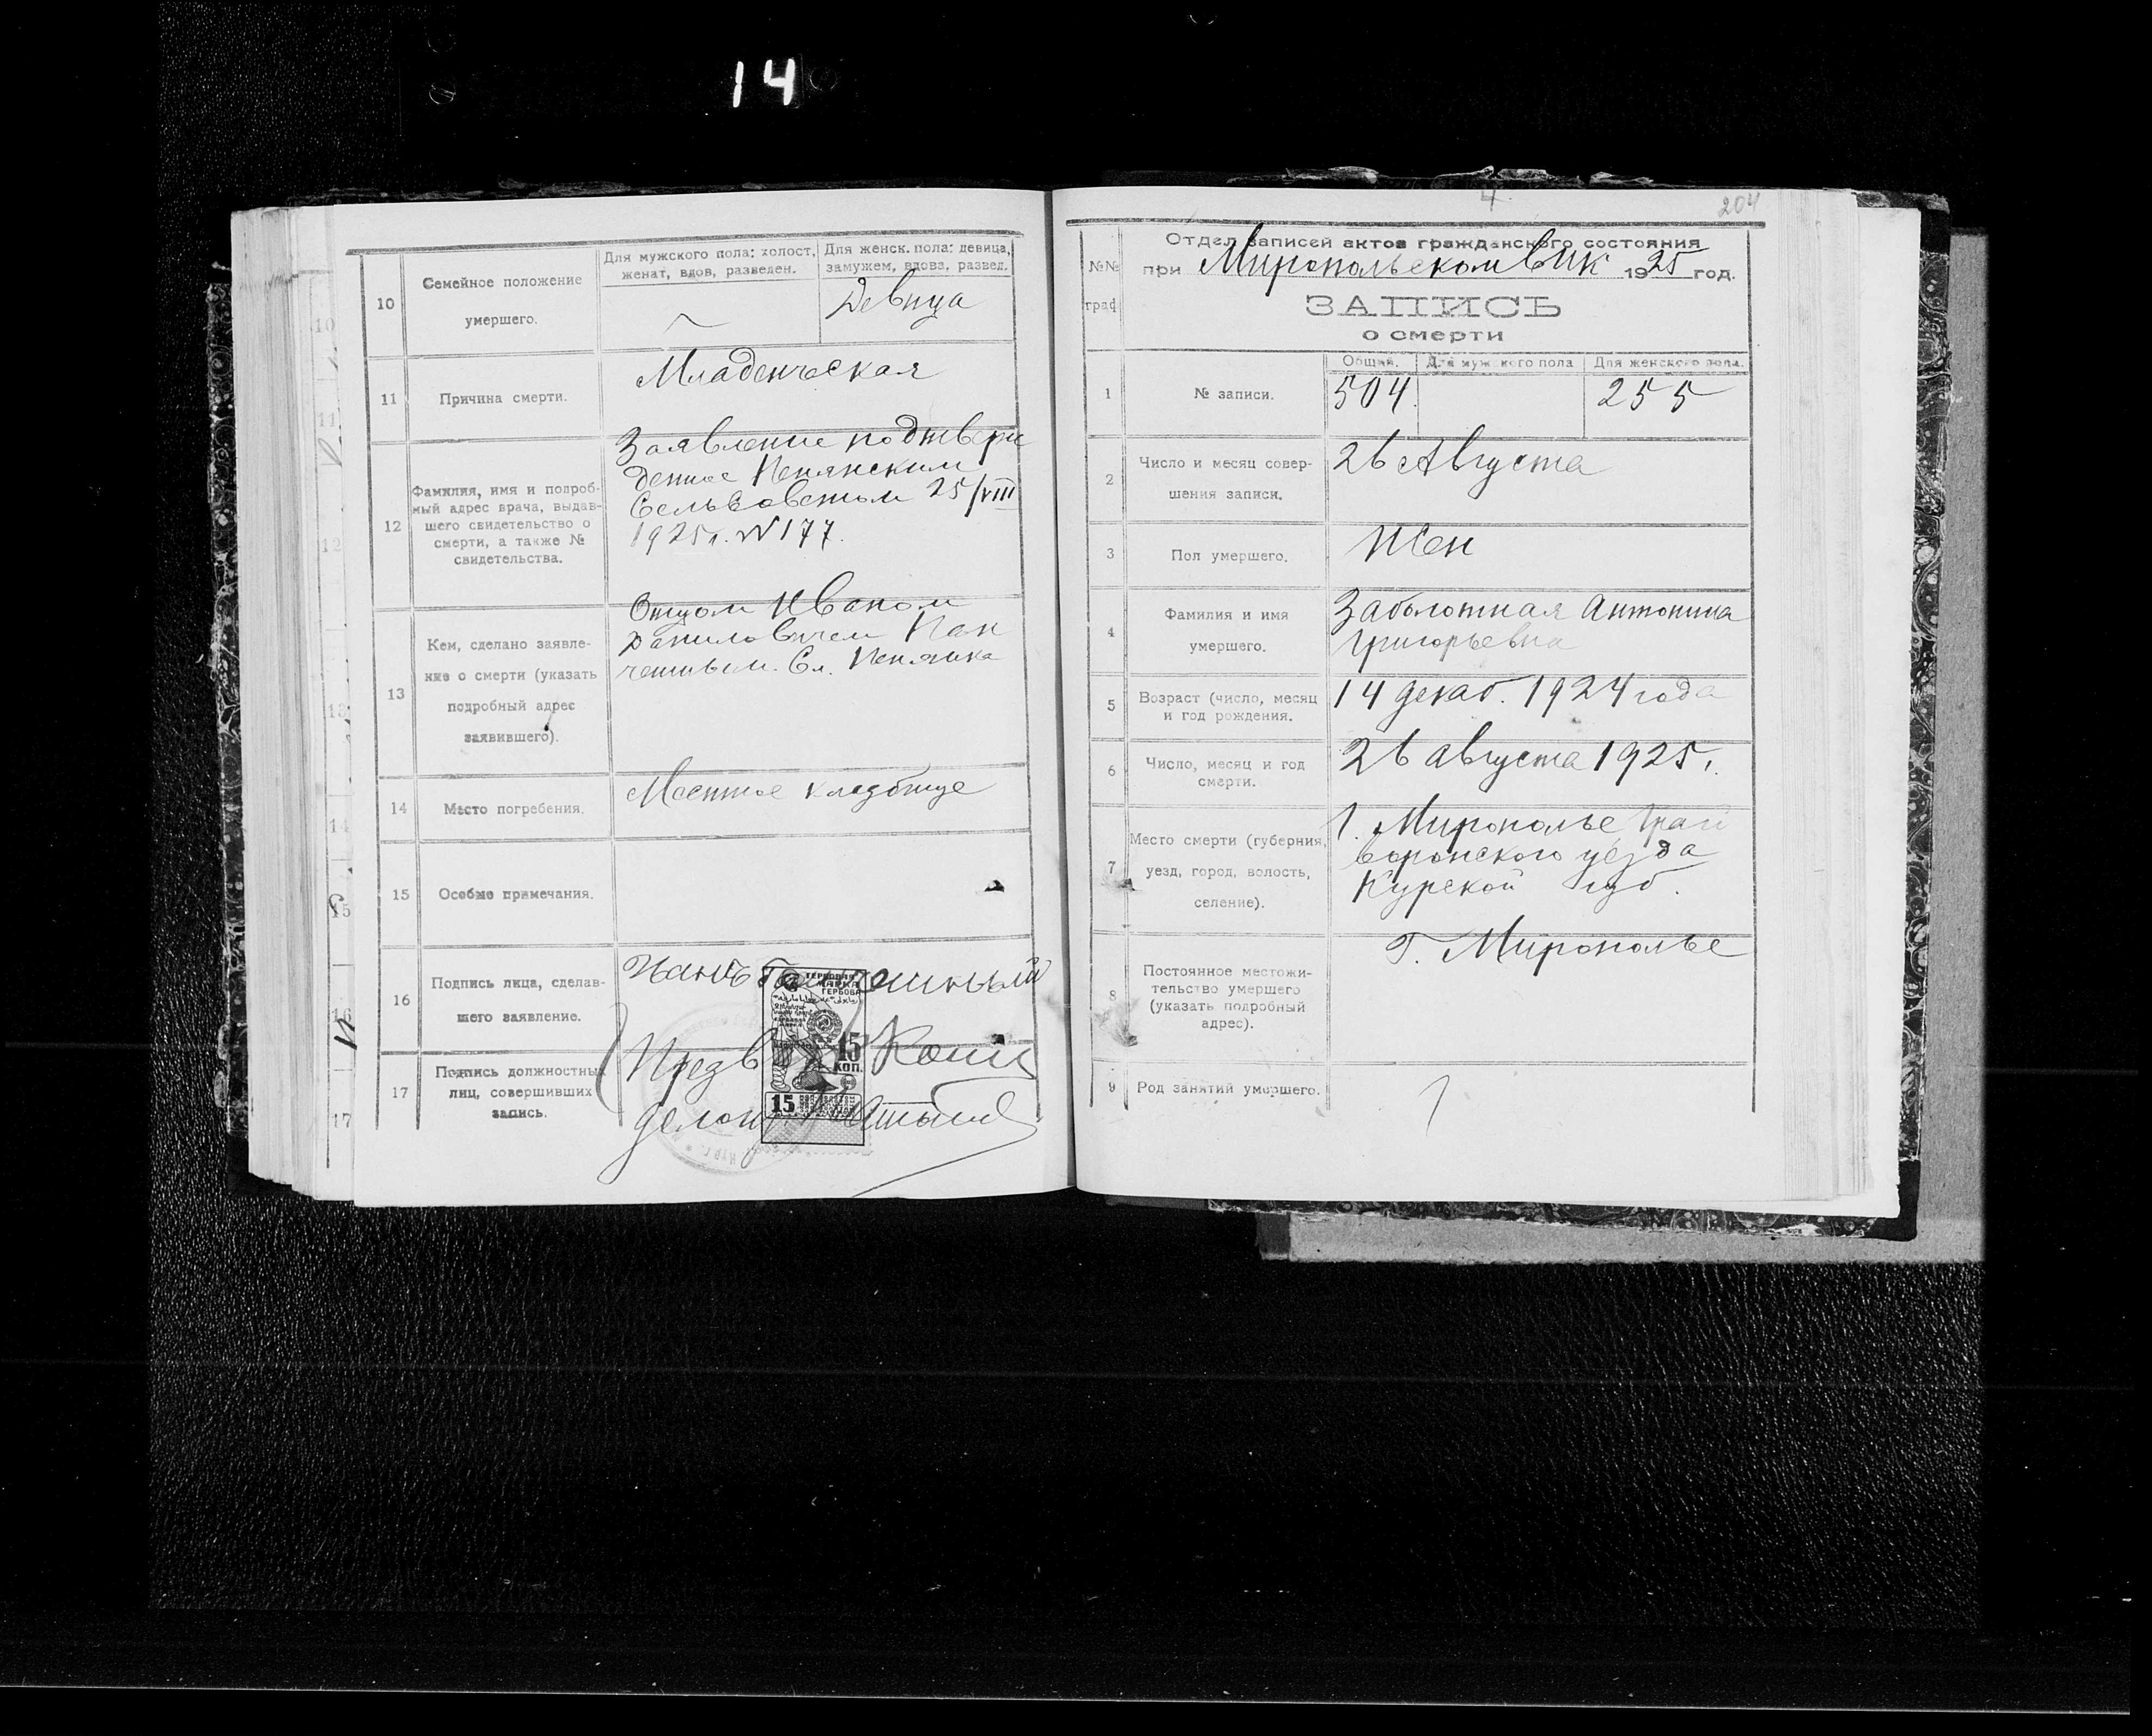 14
10
Семейное положение
умершего.
Для мужского пола: холост,
женат, вдов, разведен.
Для женск. пола: девица,
замужем, вдова, развед.
Девица
11
Причина смерти.
Младенческая
12
Фамилия, имя и подроб-
ный адрес врача, выдав-
шего свидетельство о
смерти, а также №
свидетельства.
Заявление подтверж
денное Пенянским
Сельсоветом 25/VIII
1925 г. N 177.
13
Кем, сделано заявле-
ние о смерти (указать
подробный адрес
заявившего).
Отцом Иваном
Даниловичем
Сл. Пенянка
14
Место погребения.
Местное кладбище
15
Особые примечания.
16
Подпись лица, сделав-
шего заявление.
ГЕРБОВАЯ
МАРКА
15
КОП.
15
17
Подпись должностных
лиц, совершивших
запись.
Предв
Делоп
4
204
№№
граф
Отдел записей актов гражданского состояния
при Миропольском ВИК 1925 год.
ЗАПИСЬ
о смерти
1
№ записи.
Общий. Для мужского пола Для женского пола.
504. 255
2
Число и месяц совер-
шения записи.
26 Августа
3
Пол умершего.
Жен
4
Фамилия и имя
умершего.
Заболотная Антонина
Григорьевна
5
Возраст (число, месяц
и год рождения.
14 декаб. 1924 года
6
Число, месяц и год
смерти.
26 августа 1925 г.
7
Место смерти (губерния,
уезд, город, волость,
селение).
Г. Мирополье Грай
воронского уезда
Курской губ.
8
Постоянное местожи-
тельство умершего
(указать подробный
адрес).
Г. Мирополье
9
Род занятий умершего.